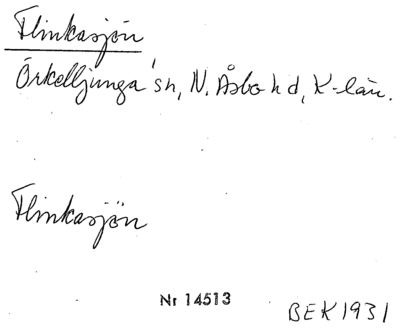 Flinkasjön
Örkelljunga sn, N. Åsbo hd, K-län.
Flinkasjön
Nr 14513
BEK 1931